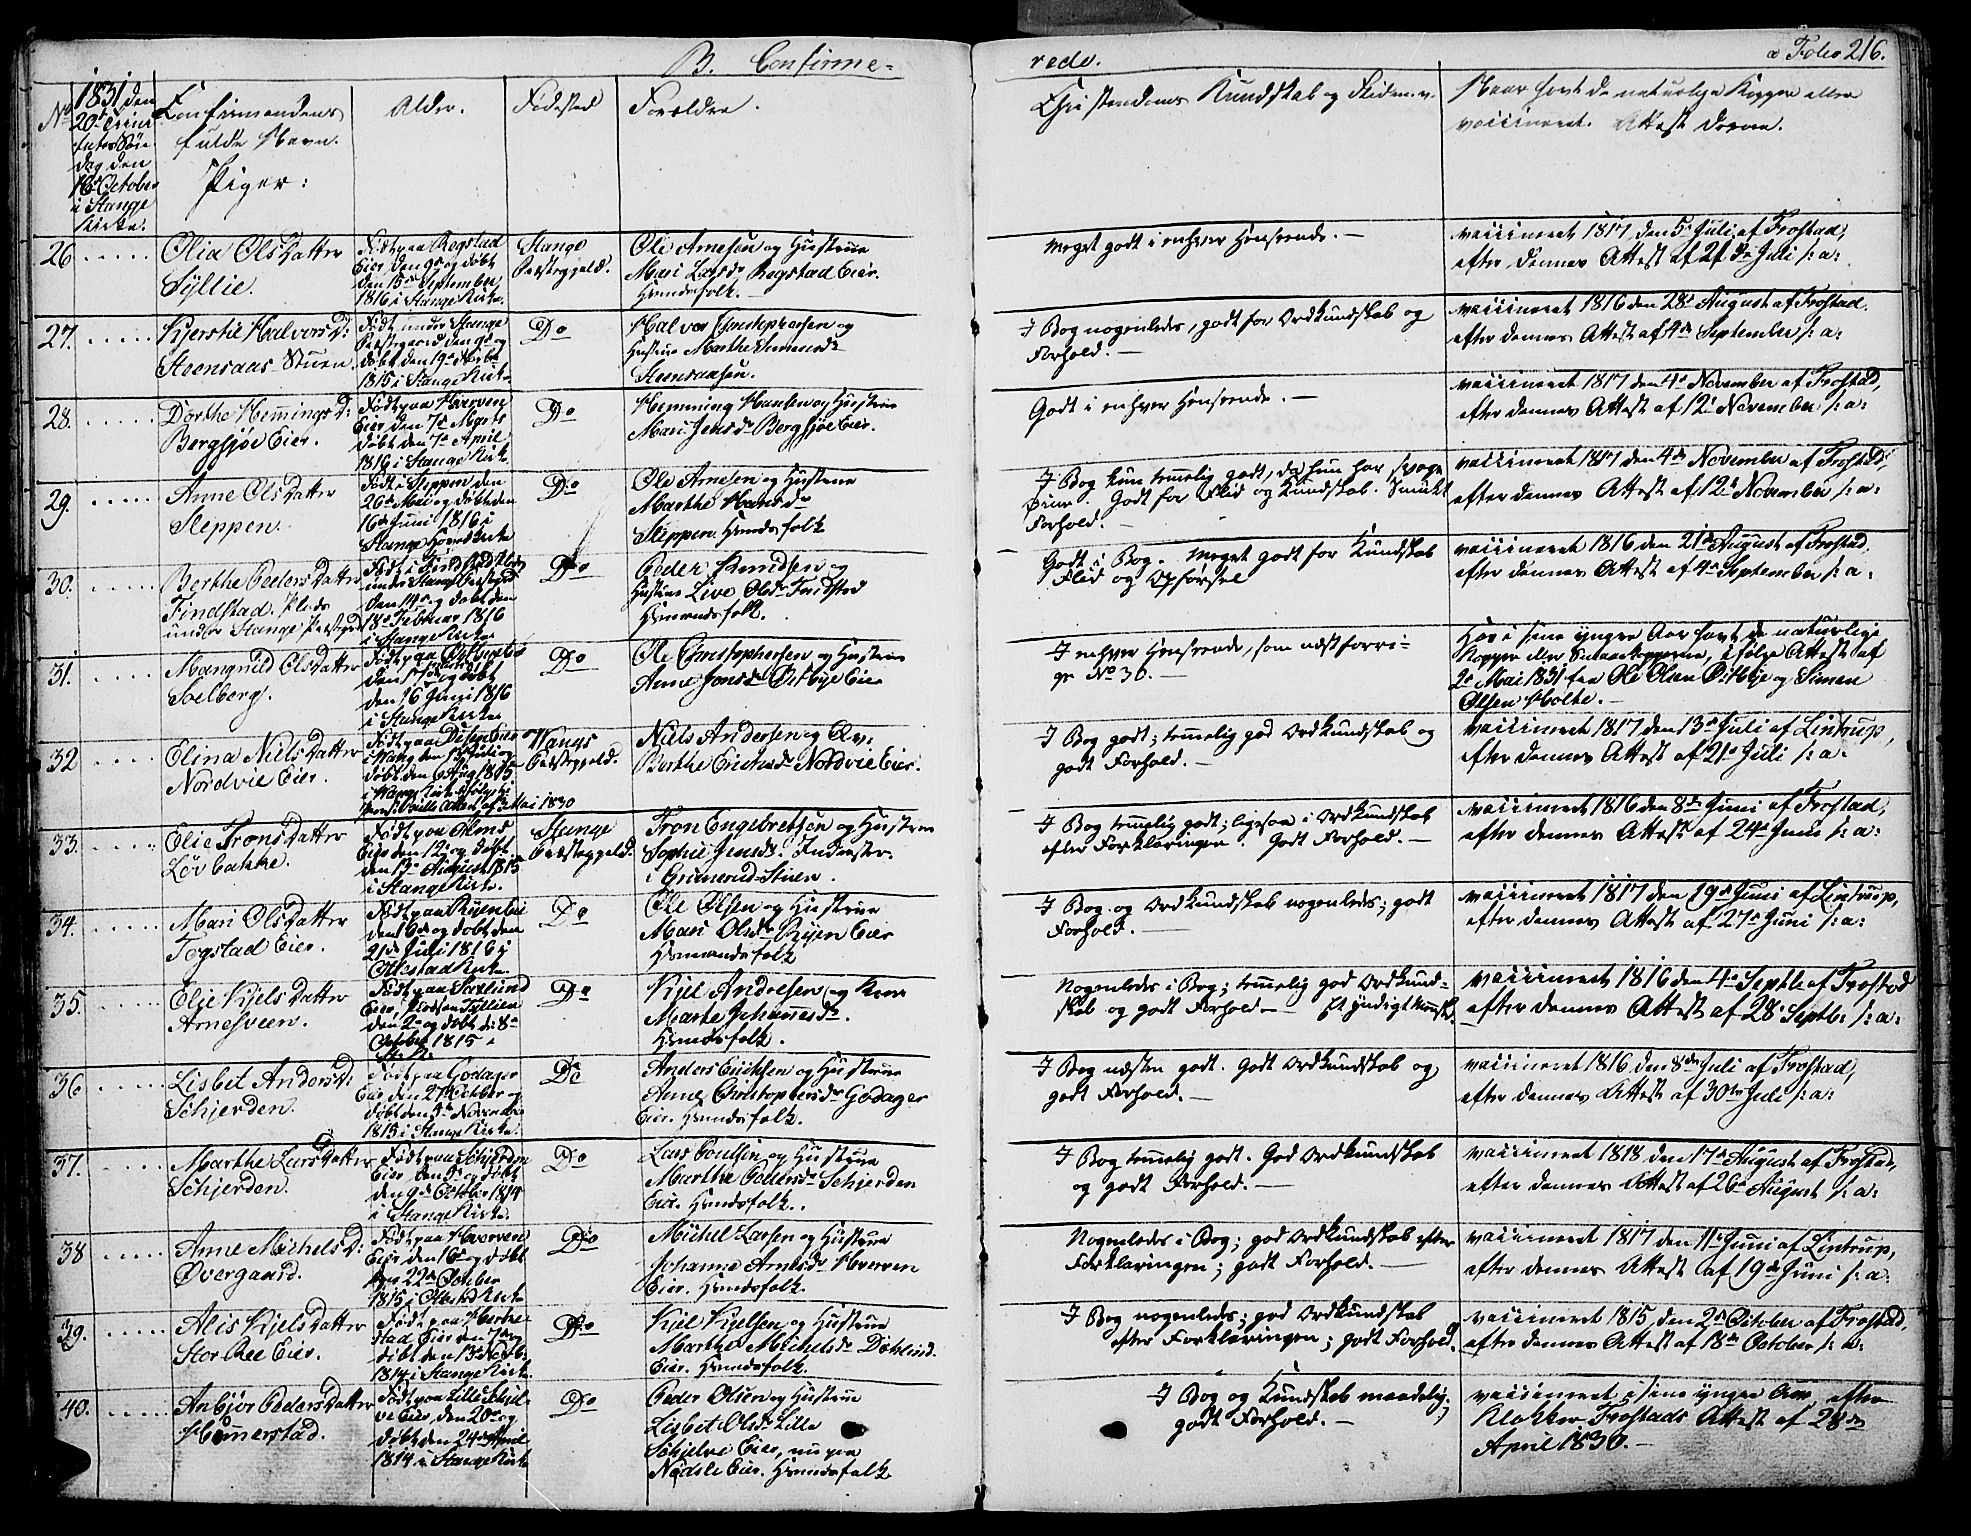 B. Confirme=
rede.
a Folio 216.
No
1831 den
20de Trini-
tatis Søn-
dag den
16de October
i Stange
Kirke.
Confirmandens
fulde Navn.
Piger:
Alder.
Fødested
Forældre.
Christendoms Kundskab og Fliden. v.
Naar havt de naturlige Kopper eller
vaccineret. Attest derom.
26
Olia Olsdatter
Syllie.
Født paa Rogstad
Eier, den 9de og døbt
den 15de September
1816 i Stange Kirke.
Stange
Præstegjeld.
Ole Arnesen og Hustrue
Mari Larsdr Rogstad Eier.
Huusmandsfolk.
Meget godt i enhver Henseende.
vaccineret 1817 den 5te Juli af Frostad,
efter dennes Attest af 21de Juli s: a:
27.
Kjerstie Halvorsd:
Steensaas Stuen.
Født under Stange
Præstegaard den 9de og
døbt den 19de Novbr
1815 i Stange Kirke
Do
Halvor Christophersen og
Hustrue Marthe
Steensaasen.
I Bog nogenledes, godt for Ordkundskab og
Forhold.
vaccineret 1816 den 28de August af Frostad.
efter dennes Attest af 4de September s: a:
28.
Dorthe Hemmingsd:
Bergsjøe Eier.
Født paa Hverven
Eier den 7de Marts
døbt den 7de April
1816 i Stange Kirke.
Do
Hemming Hansen og Hustrue
Mari Jensdr Bergsjøe Eier.
Godt i enhver Henseende.
vaccineret 1817 den 4de November af Frostad,
efter dennes Attest af 12te November s: a:
29.
Anne Olsdatter
Steppen.
Født i Steppen den
26de Mai og døbt den
16de Juni 1816 i
Stange Hovedkirke
Do
Ole Arnesen og Hustrue
Marthe Hansdr
Steppen. Huusmandsfolk
I Bog kun temmelig godt, da hun har svage
Øine. Godt for Flid og Kundskab. Smukt
Forhold.
vaccineret 1817 den 4de November af Frostad,
efter dennes Attest af 12te November s: a:
30.
Berthe Pedersdatter
Findstad. Plads
under Stange Præstegrd
Født i
under Stange Præstegrd
den 14de og døbt den
18de Februar 1816
i Stange Kirke
Do
Peder Knudsen og
Hustrue Live Olsdr Findstad
Huusmandsfolk.
Godt i Bog. Meget godt for Kundskab
Flid og Opførsel
vaccineret 1816 den 21de August af Frostad,
efter dennes Attest af 4de September s: a:
31.
Mangnild Olsdatter
Soelberg.
Født paa Østbye Eier
den og døbt
den 16 Juni 1816
i Stange Kirke
Do
Ole Christophersen og Hustrue
Anne Jonsdr Østbye Eier
I enhver Henseende, som næstforri-
ge No 30.
Har i sine yngre Aar havt de naturlige
Kopper eller Smaakopperne, ifølge Attest af
2de Mai 1831 fra Ole Olsen Østbye og Simen
Olsen Holte.
32
Elina Nielsdatter
Nordvie Eier.
Født paa Disen Eier
Vang den Juli og
døbt den 6 Aug 1815
i Vangs Kirke ifølge
Attest af 3 Mai 1830
Wangs
Præstegjeld.
Niels Andersen og Qv:
Berthe Nordvie Eier.
I Bog godt; temmelig god Ordkundskab og
godt Forhold.
vaccineret 1817 den 13de Juli af Lintrup,
efter dennes Attest af 21de Juli s: a:
33.
Elie Tronsdatter
Løvbakke.
Født paa
Eier den 12te og døbt
den 13de August 1815
i Stange Kirke.
Stange
Præstegjeld.
Tron Engebretsen og Hustrue
Sophie Jensdr. Inderster
i Grimerud-Stuen.
I Bog temmelig godt; ligesaa i Ordkundskab
efter Forklaringen. Godt Forhold.
vaccineret 1816 den 8de Juni af Frostad,
efter dennes Attest af 24de Juni s: a:
34.
Mari Olsdatter
Togstad Eier.
Født paa Ryen Eier
den 6de og døbt den
21de Juli 1816 i
Ottestad Kirke.
Do
Ole Olsen og Hustrue
Mari Olsdr Ryen Eier
Huusmandsfolk
I Bog og Ordkundskab nogenledes; godt
Forhold.
vaccineret 1817 den 19de Juni af Lintrup,
efter dennes Attest af 27de Juni s: a:
35.
Elie Kjelsdatter
Arnesveen.
Født paa Sørlund
Eier, Pladsen Syllien
den 2de og døbt d: 8de
October 1815 i
St: K:
Do
Kjel Andresen og Kone
Marte Johannesdr.
Huusmandsfolk.
Nogenledes i Bog; temmelig god Ordkund-
skab og godt Forhold. Et yndigt
vaccineret 1816 den 4de Septbr af Frostad
efter dennes Attest af 28de Septbr: s: a:
36
Lisbet Andersd:
Schjerden.
Født paa Godager
Eier den 27de October og
døbt den 5te November
1815 i Stange Kirke.
Do
Anders Erichsen og Hustrue
Anne Christophersdr Godager
Eier. Huusmandsfolk.
I Bog næsten godt. Godt Ordkundskab og
godt Forhold.
vaccineret 1816 den 8de Juli af Frostad,
efter dennes Attest af 30te Juli s: a:
37.
Marthe Larsdatter
Schjerden.
Født paa Schjerden
Eier den 5te og døbt
den 9de October 1814
i Stange Kirke.
Do
Lars Poulsen og Hustrue
Marthe Pedersdr Schjerden
Eier. Huusmandsfolk.
I Bog temmelig godt. God Ordkundskab
og godt Forhold.
vaccineret 1818 den 17de August af Frostad,
efter dennes Attest af 26de August s: a:
38
Anne Michelsd:
Øvergaard.
Født paa Hverven
Eier den 16de og døbt
den 22de October
1815 i Ottestad Kirke
Do
Michel Larsen og Hustrue
Johanne Arnesdr Hverven
Eier. Huusmandsfolk
Nogenledes i Bog; god Ordkundskab efter
Forklaringen; godt Forhold.
vaccineret 1817 den 11te Juni af Lintrup,
efter dennes Attest af 19de Juni s: a:
39.
Alis Kjelsdatter
Stor Ree Eier.
Født paa
stad Eier den 7de og
døbt den 13de Novbr:
1814 i Stange Kirke.
Do
Kjel Kjelsen og Hustrue
Marthe Michelsdr Døhlind.
Eier. Huusmandsfolk.
I Bog nogenledes; god Ordkundskab
efter Forklaringen; godt Forhold.
vaccineret 1815 den 2de October af Frostad,
efter dennes Attest af 18de October s: a:
40.
Anbjør Pedersdatter
Hommerstad.
Født paa Lille Schjel-
ve Eier, den 20de og
døbt den 24de April
1814 i Stange Kirke
Do
Peder Olsen og Hustrue
Lisbet Olsdr Lille
Schjelve Eier, nu paa
Nødsle Eier. Huusmandsfolk
I Bog og Kundskab maadelig;
godt Forhold.
vaccineret i sine yngre Aar efter
Klokker Frostads Attest af 28de
April 1830.